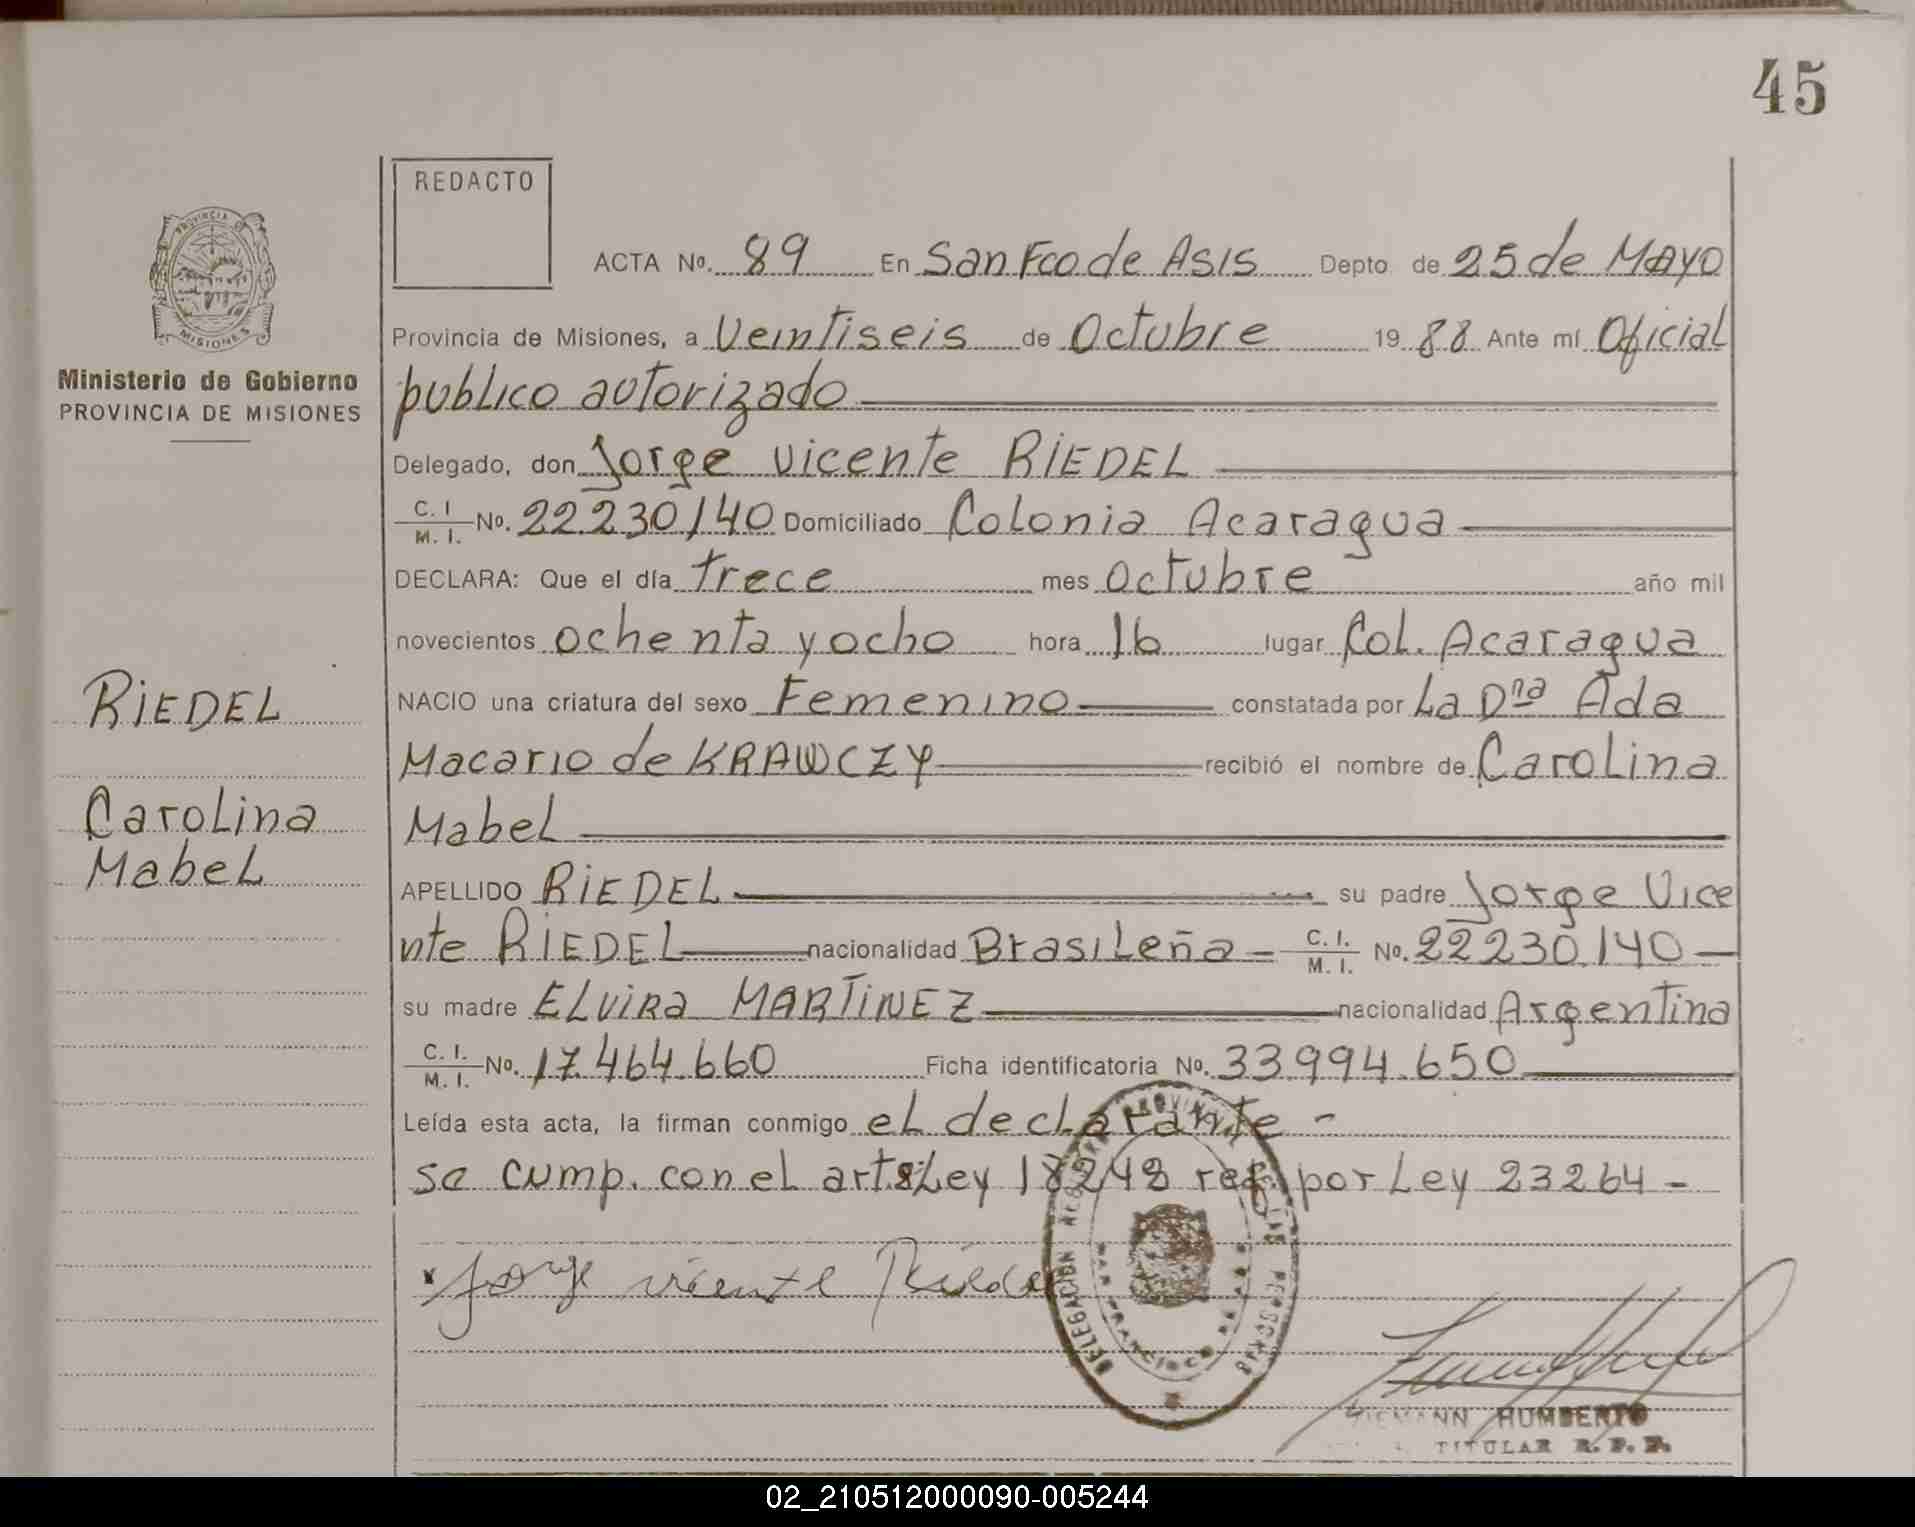 45
REDACTO
ACTA No. 89 En San Fco de Asis Depto. de 25 de Mayo
Provincia de Misiones, a Veintiseis de Octubre 19 88 Ante mí Oficial
publico autorizado
Delegado, don Jorge Vicente RIEDEL
C. I. / M. I. No. 22.230.140 Domiciliado Colonia Acaragua
DECLARA: Que el día trece mes Octubre año mil
novecientos ochenta y ocho hora 16 lugar Col. Acaragua
NACIO una criatura del sexo Femenino constatada por La Dña Ada
Macario de KRAWCZY recibió el nombre de Carolina
Mabel
APELLIDO RIEDEL su padre Jorge Vice
nte RIEDEL nacionalidad Brasileña - C. I. / M. I. No. 22.230.140 -
su madre Elvira MARTINEZ nacionalidad Argentina
C. I. / M. I. No. 17.464.660 Ficha identificatoria No. 33.994.650
Leída esta acta, la firman conmigo el declarante -
se cump. con el art. 8 Ley 18248 ref. por Ley 23264 -
Jorge vicente Riedel
DELEGACION
SAN FRANCISCO DE ASIS
HUMBERTO
TITULAR R. P. P.
PROVINCIA DE
MISIONES
Ministerio de Gobierno
PROVINCIA DE MISIONES
RIEDEL
Carolina
Mabel
02_210512000090-005244